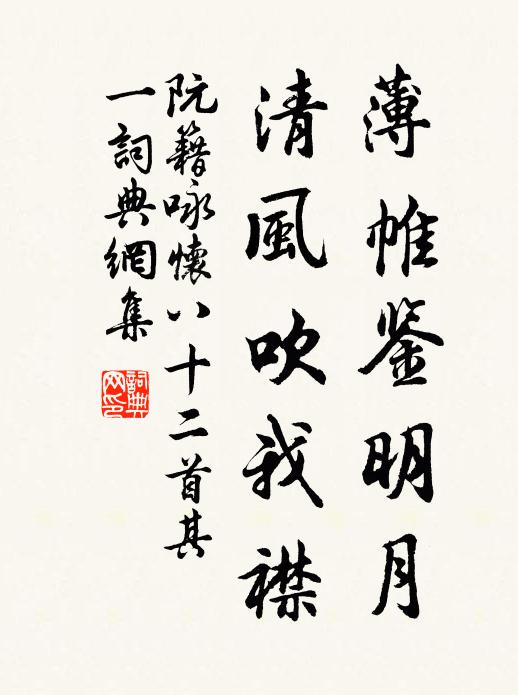 薄帷鉴明月
清風吹我襟
阮籍咏懷八十二首其
一詞典網集
詞典
网印